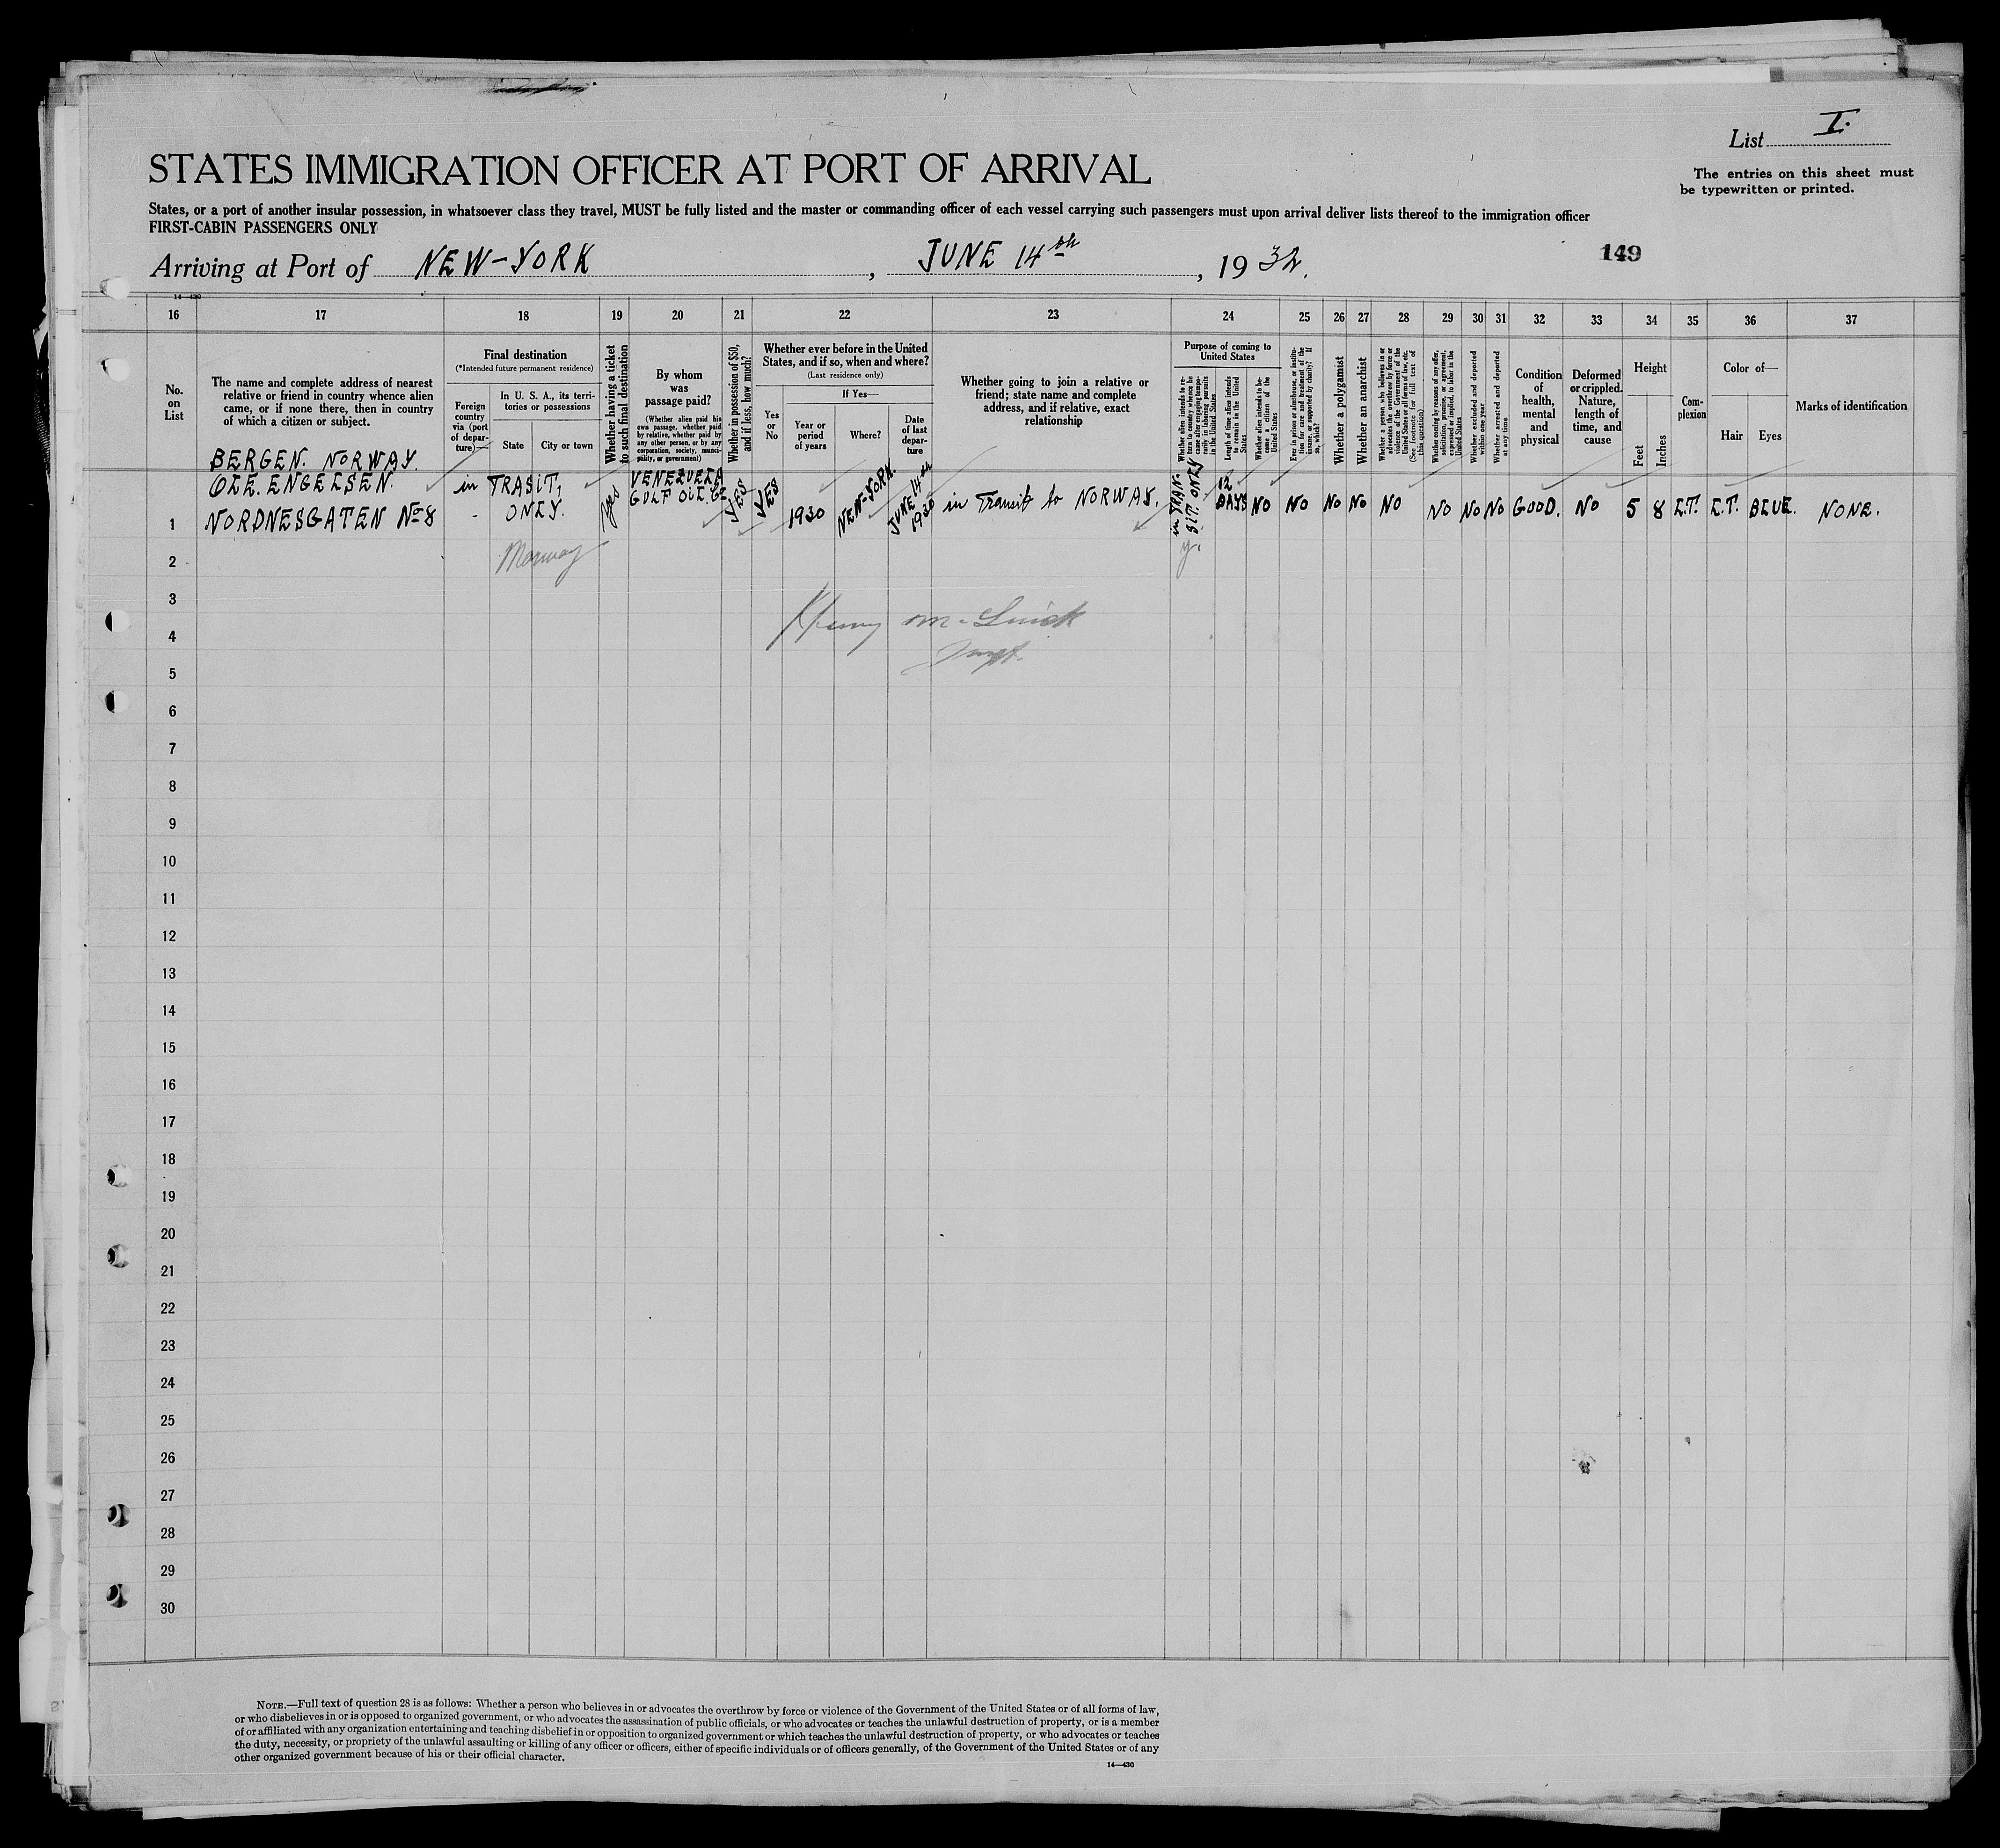 List I.
STATES IMMIGRATION OFFICER AT PORT OF ARRIVAL
The entries on this sheet must
be typewritten or printed.
States, or a port of another insular possession, in whatsoever class they travel, MUST be fully listed and the master or commanding officer of each vessel carrying such passengers must upon arrival deliver lists thereof to the immigration officer
FIRST-CABIN PASSENGERS ONLY
Arriving at Port of NEW-YORK, JUNE 14th, 1932.
149
14—430
16 17 18 19 20 21 22 23 24 25 26 27 28 29 30 31 32 33 34 35 36 37
No.
on
List
The name and complete address of nearest
relative or friend in country whence alien
came, or if none there, then in country
of which a citizen or subject.
Final destination
(*Intended future permanent residence)
Foreign
country
via (port
of depar-
ture)—
In U. S. A., its terri-
tories or possessions
State
City or town
Whether having a ticket
to such final destination
By whom
was
passage paid?
(Whether alien paid his
own passage, whether paid
by relative, whether paid by
any other person, or by any
corporation, society, munici-
pality, or government)
Whether in possession of $50,
and if less, how much?
Whether ever before in the United
States, and if so, when and where?
(Last residence only)
If Yes—
Yes
or
No
Year or
period
of years
Where?
Date
of last
depar-
ture
Whether going to join a relative or
friend; state name and complete
address, and if relative, exact
relationship
Purpose of coming to
United States
Whether alien intends to re-
turn to country whence he
came after engaging tempo-
rarily in laboring pursuits
in the United States
Length of time alien intends
to remain in the United
States
Whether alien intends to be-
come a citizen of the
United States
Ever in prison or almshouse, or institu-
tion for care and treatment of the
insane, or supported by charity? If
so, which?
Whether a polygamist
Whether an anarchist
Whether a person who believes in or
advocates the overthrow by force or
violence of the Government of the
United States or all forms of law, etc.
(See footnote for full text of
this question)
Whether coming by reasons of any offer,
solicitation, promise, or agreement,
expressed or implied, to labor in the
United States
Whether excluded and deported
within one year
Whether arrested and deported
at any time
Condition
of
health,
mental
and
physical
Deformed
or crippled.
Nature,
length of
time, and
cause
Height
Feet
Inches
Com-
plexion
Color of—
Hair
Eyes
Marks of identification
BERGEN. NORWAY.
OLE. ENGELSEN.
1 NORDNESGATEN No 8
in TRASIT,
- ONLY.
yes
VENEZUELA
GULF OIL. Co
YES
YES
1930
NEW-YORK.
JUNE 14th
1930
in Transit to NORWAY.
in TRAN-
SIT. ONLY
12
DAYS
NO NO NO NO NO NO NO NO GOOD. NO 5 8 LT. LT. BLUE. NONE.
2
Norway
y.
3
4
Henry
5
6
7
8
9
10
11
12
13
14
15
16
17
18
19
20
21
22
23
24
25
26
27
28
29
30
NOTE.—Full text of question 28 is as follows: Whether a person who believes in or advocates the overthrow by force or violence of the Government of the United States or of all forms of law,
or who disbelieves in or is opposed to organized government, or who advocates the assassination of public officials, or who advocates or teaches the unlawful destruction of property, or is a member
of or affiliated with any organization entertaining and teaching disbelief in or opposition to organized government or which teaches the unlawful destruction of property, or who advocates or teaches
the duty, necessity, or propriety of the unlawful assaulting or killing of any officer or officers, either of specific individuals or of officers generally, of the Government of the United States or of any
other organized government because of his or their official character.
14—430